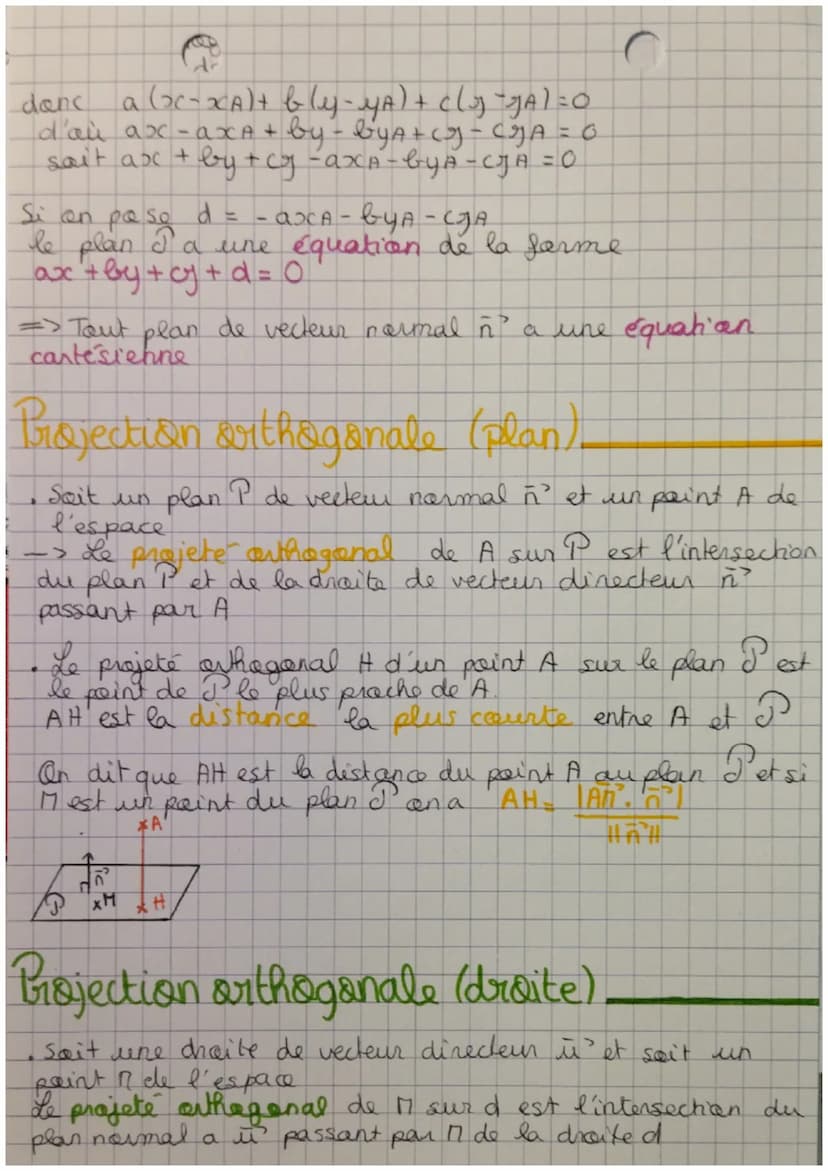 donc a(x-xA)+ b(y-yA) + c(z-zA)=0
d'où ax - axA + by - byA + cz - czA = 0
soit ax + by + cz - axA - byA - czA = 0
Si on pose d = - axA - byA - czA
le plan P a une équation de la forme
ax + by + cz + d = 0
=> Tout plan de vecteur normal n⃗ a une équation
cartésienne
Projection orthogonale (plan)
. Soit un plan P de vecteur normal n⃗ et un point A de
l'espace
-> Le projeté orthogonal de A sur P est l'intersection
du plan P et de la droite de vecteur directeur n⃗
passant par A
. Le projeté orthogonal H d'un point A sur le plan P est
le point de P le plus proche de A.
AH est la distance la plus courte entre A et P
On dit que AH est la distance du point A au plan P et si
M est un point du plan P on a AH = |AM⃗ . n⃗| / ||n⃗||
A
n⃗
P M H
Projection orthogonale (droite)
. Soit une droite de vecteur directeur u⃗ et soit un
point M de l'espace
Le projeté orthogonal de M sur d est l'intersection du
plan normal a u⃗ passant par M de la droite d